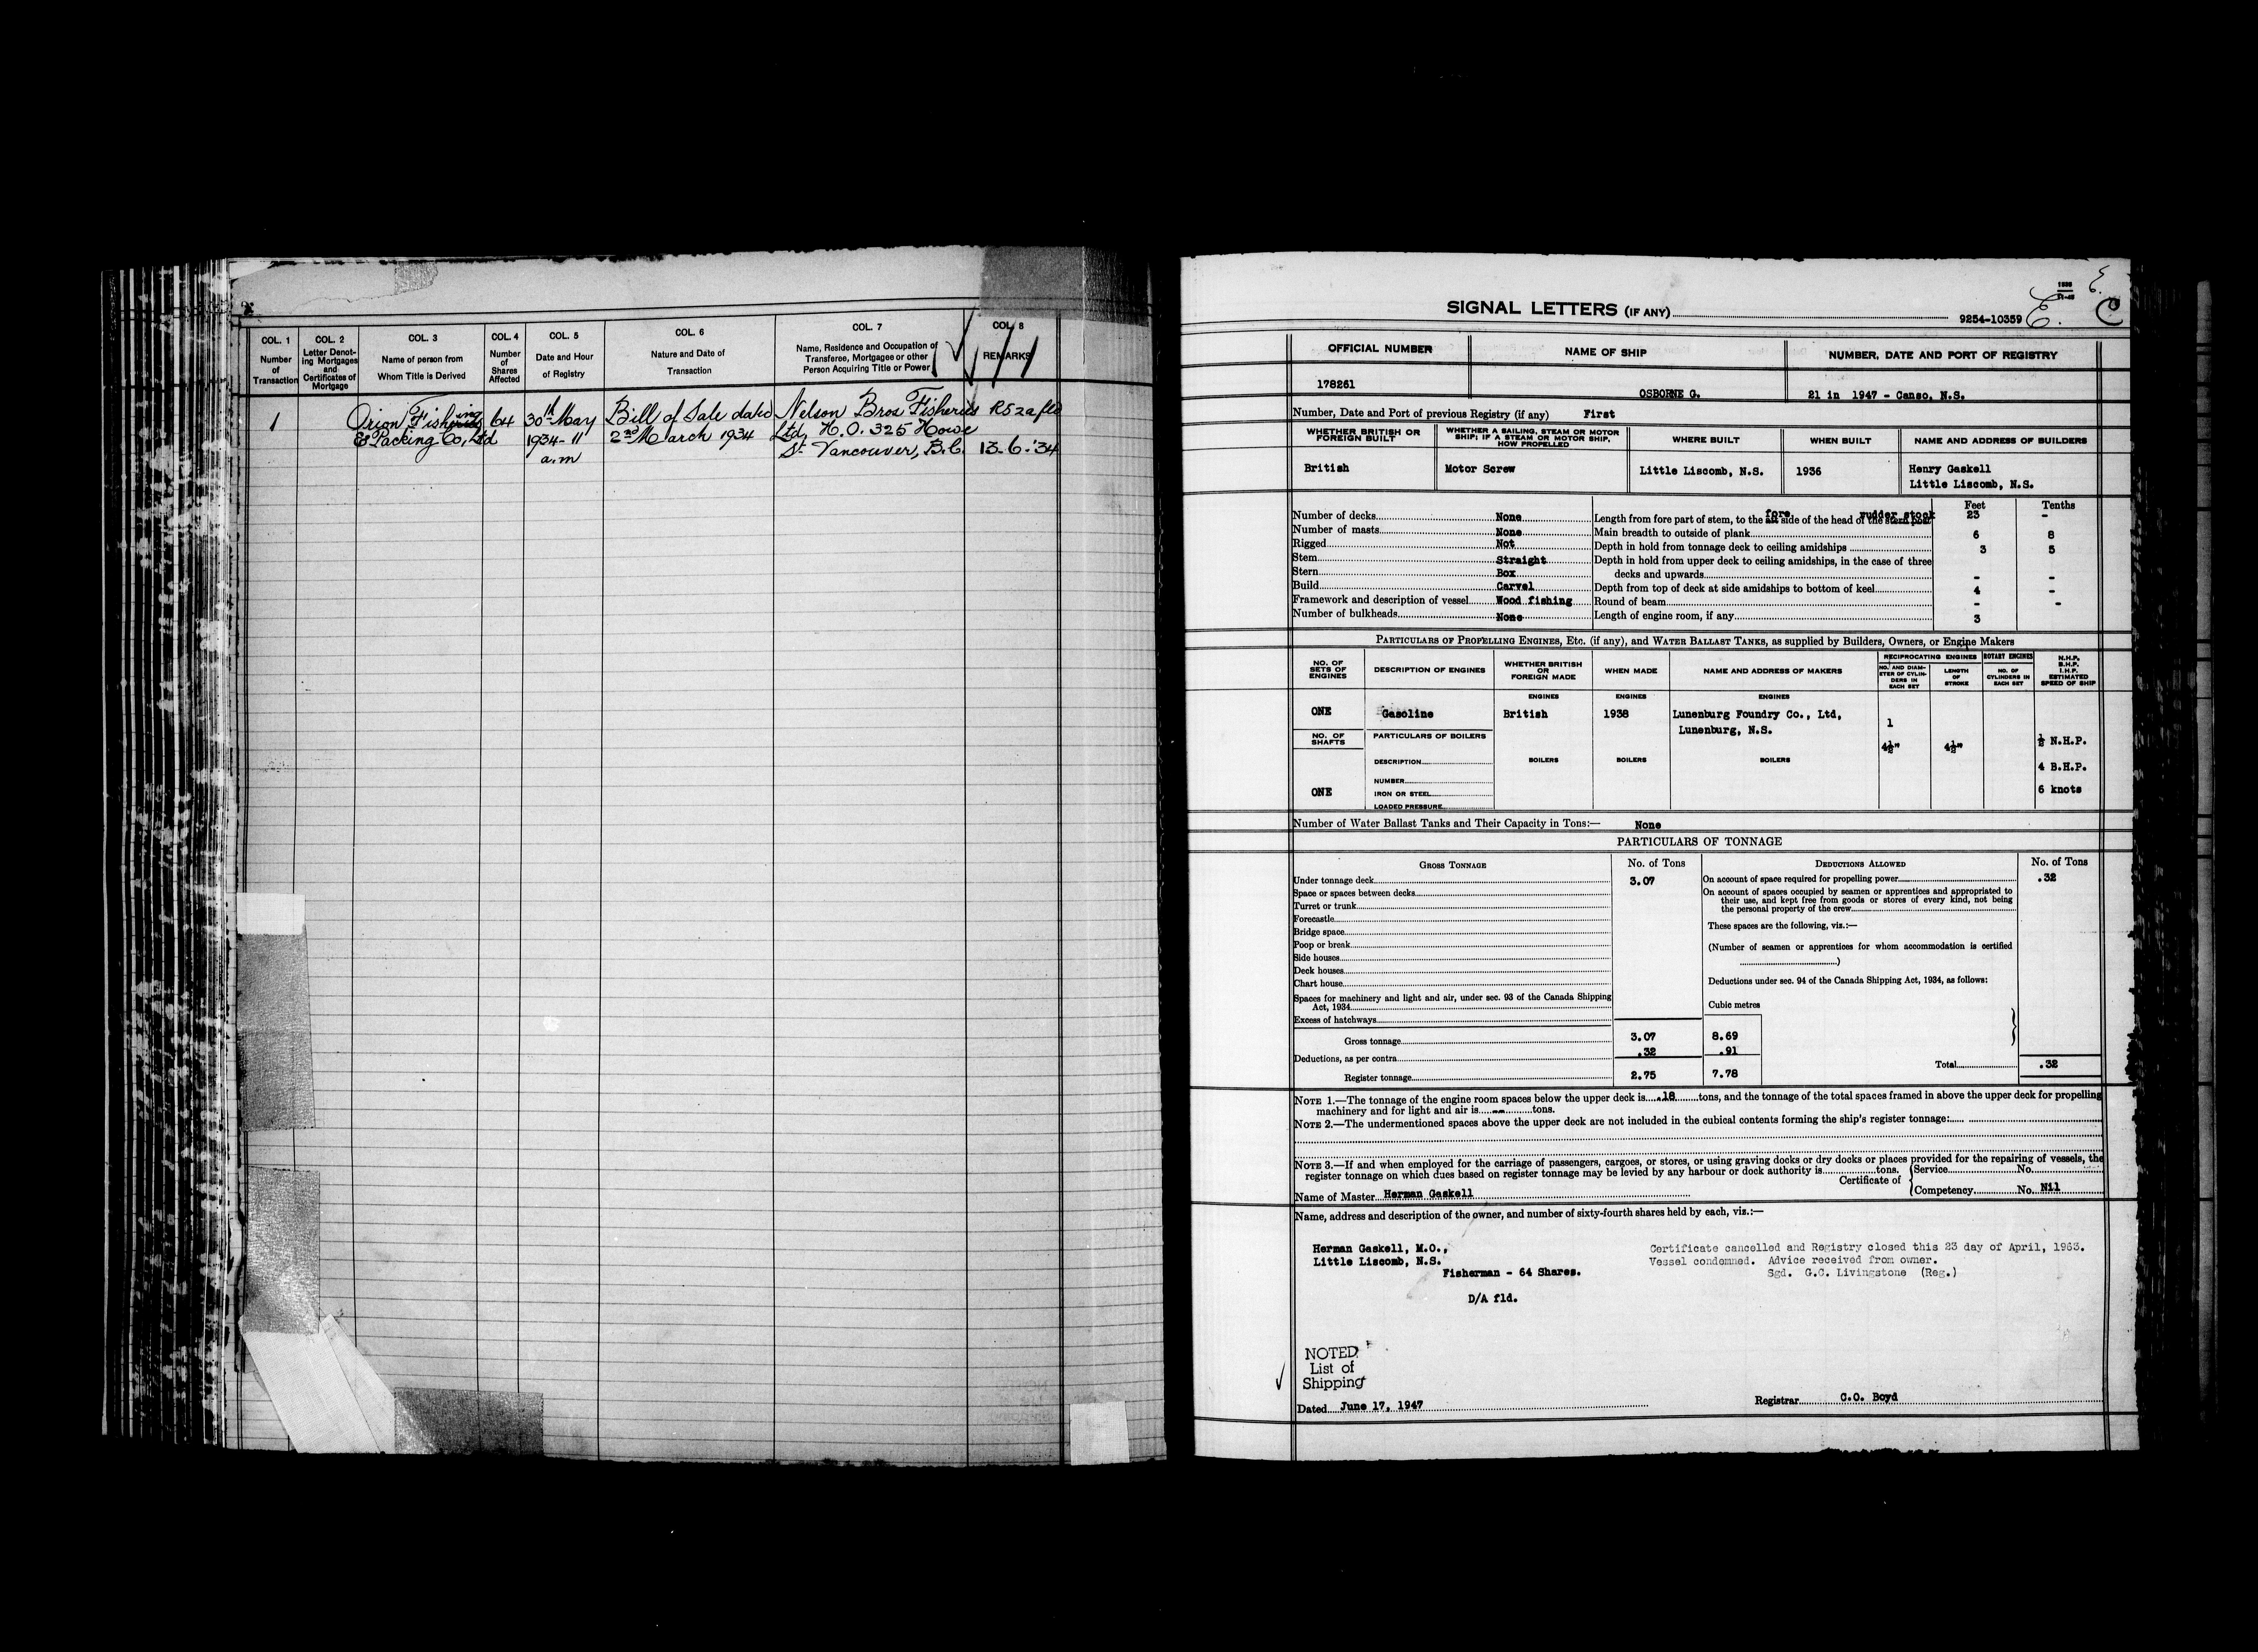 COL. 1
Number
of
Transaction
COL. 2
Letter Denot-
ing Mortgages
and
Certificates of
Mortgage
COL. 3
Name of person from
Whom Title is Derived
COL. 4
Number
of
Shares
Affected
COL. 5
Date and Hour
of Registry
COL. 6
Nature and Date of
Transaction
COL. 7
Name, Residence and Occupation of
Transferee, Mortgagee or other
Person Acquiring Title or Power
COL. 8
REMARKS
1
Orion Fishing
& Packing Co, Ltd
64
30th May
1934 - 11
a.m
Bill of Sale dated
2nd March 1934
Nelson Bros Fisheries
Ltd, H.O. 325 Howe
St. Vancouver, B.C.
13-6-'34
SIGNAL LETTERS (IF ANY)
9254-10359
E.
OFFICIAL NUMBER
NAME OF SHIP
NUMBER, DATE AND PORT OF REGISTRY
178261
OSBORNE G.
21 in 1947 - Canso, N.S.
Number, Date and Port of previous Registry (if any) First
WHETHER BRITISH OR
FOREIGN BUILT
WHETHER A SAILING, STEAM OR MOTOR
SHIP; IF A STEAM OR MOTOR SHIP,
HOW PROPELLED
WHERE BUILT
WHEN BUILT
NAME AND ADDRESS OF BUILDERS
British
Motor Screw
Little Liscomb, N.S.
1936
Henry Gaskell
Little Liscomb, N.S.
Number of decks None
Number of masts None
Rigged Not
Stem Straight
Stern Box
Build Carvel
Framework and description of vessel Wood fishing
Number of bulkheads None
Feet Tenths
fore rudder stock
Length from fore part of stem, to the aft side of the head of the stern post 23 -
Main breadth to outside of plank 6 8
Depth in hold from tonnage deck to ceiling amidships 3 5
Depth in hold from upper deck to ceiling amidships, in the case of three
decks and upwards - -
Depth from top of deck at side amidships to bottom of keel 4 -
Round of beam - -
Length of engine room, if any 3
PARTICULARS OF PROPELLING ENGINES, ETC. (if any), and WATER BALLAST TANKS, as supplied by Builders, Owners, or Engine Makers
NO. OF
SETS OF
ENGINES
DESCRIPTION OF ENGINES
WHETHER BRITISH
OR
FOREIGN MADE
WHEN MADE
NAME AND ADDRESS OF MAKERS
RECIPROCATING ENGINES
NO. AND DIAM-
ETER OF CYLIN-
DERS IN
EACH SET
LENGTH
OF
STROKE
ROTARY ENGINES
NO. OF
CYLINDERS IN
EACH SET
N.H.P.
B.H.P.
I.H.P.
ESTIMATED
SPEED OF SHIP
ENGINES
ENGINES
ENGINES
ONE
Gasoline
British
1938
Lunenburg Foundry Co., Ltd,
Lunenburg, N.S.
1
4½"
4½"
½ N.H.P.
4 B.H.P.
6 knots
NO. OF
SHAFTS
ONE
PARTICULARS OF BOILERS
DESCRIPTION
NUMBER
IRON OR STEEL
LOADED PRESSURE
BOILERS
BOILERS
BOILERS
Number of Water Ballast Tanks and Their Capacity in Tons:— None
PARTICULARS OF TONNAGE
GROSS TONNAGE
No. of Tons
Under tonnage deck 3.07
Space or spaces between decks
Turret or trunk
Forecastle
Bridge space
Poop or break
Side houses
Deck houses
Chart house
Spaces for machinery and light and air, under sec. 93 of the Canada Shipping
Act, 1934
Excess of hatchways
Gross tonnage 3.07 8.69
Deductions, as per contra .32 .91
Register tonnage 2.75 7.78
DEDUCTIONS ALLOWED
No. of Tons
On account of space required for propelling power .32
On account of spaces occupied by seamen or apprentices and appropriated to
their use, and kept free from goods or stores of every kind, not being
the personal property of the crew
These spaces are the following, viz.:—
(Number of seamen or apprentices for whom accommodation is certified
)
Deductions under sec. 94 of the Canada Shipping Act, 1934, as follows:
Cubic metres
Total .32
NOTE 1.—The tonnage of the engine room spaces below the upper deck is .18 tons, and the tonnage of the total spaces framed in above the upper deck for propelling
machinery and for light and air is -- tons.
NOTE 2.—The undermentioned spaces above the upper deck are not included in the cubical contents forming the ship's register tonnage:
NOTE 3.—If and when employed for the carriage of passengers, cargoes, or stores, or using graving docks or dry docks or places provided for the repairing of vessels, the
register tonnage on which dues based on register tonnage may be levied by any harbour or dock authority is tons.
Certificate of
Service No.
Competency No. Nil
Name of Master Herman Gaskell
Name, address and description of the owner, and number of sixty-fourth shares held by each, viz.:—
Herman Gaskell, M.O.,
Little Liscomb, N.S.
Fisherman - 64 Shares.
D/A fld.
Certificate cancelled and Registry closed this 23 day of April, 1963.
Vessel condemned. Advice received from owner.
Sgd. G.C. Livingstone (Reg.)
NOTED
List of
Shipping
Dated June 17, 1947
Registrar C.O. Boyd